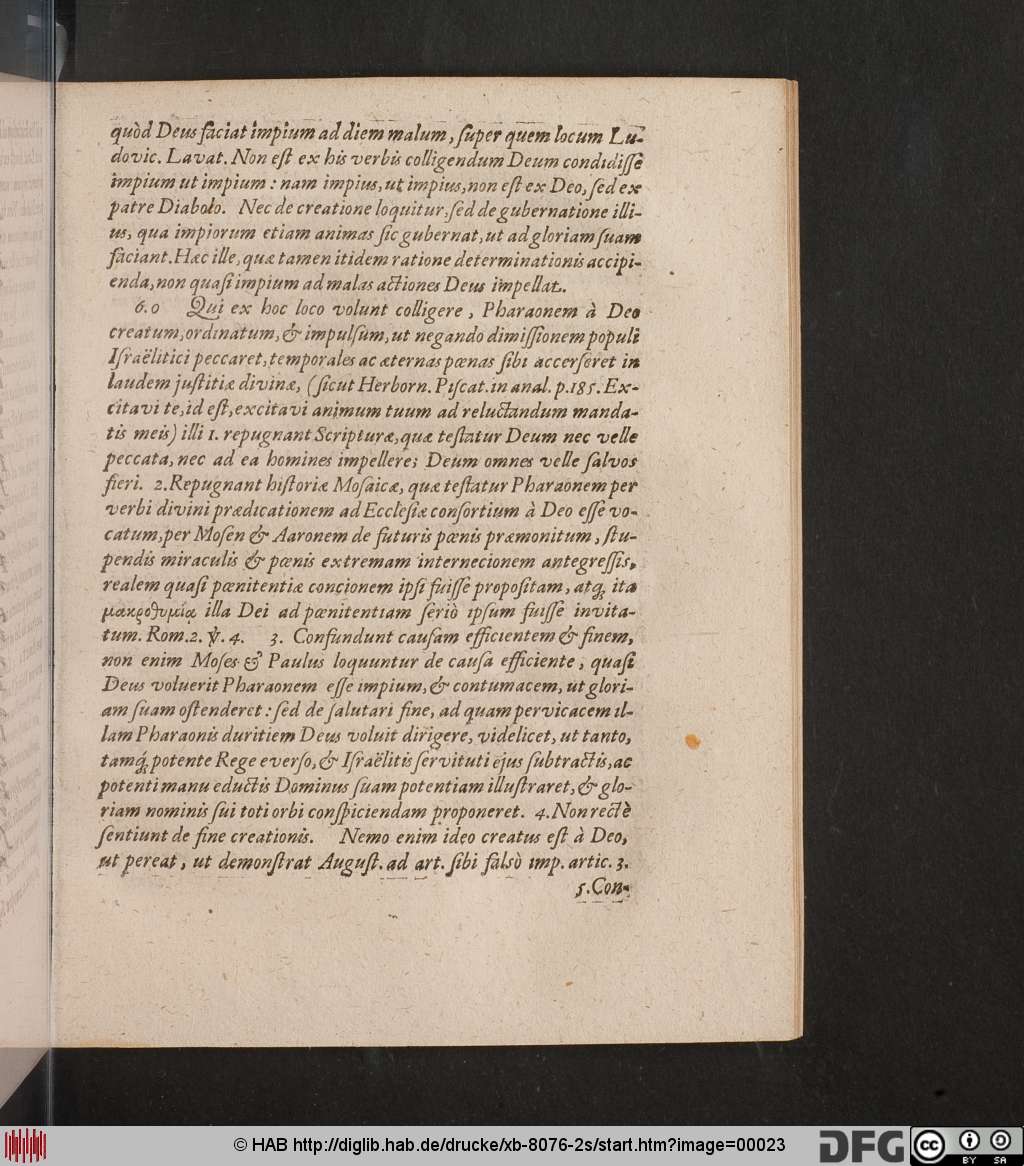 quòd Deus faciat impium ad diem malum, ſuper quem locum Lu-
dovic. Lavat. Non eſt ex his verbis colligendum Deum condidiſſe
impium ut impium : nam impius, ut impius, non eſt ex Deo, ſed ex
patre Diabolo. Nec de creatione loquitur, ſed de gubernatione illi-
us, qua impiorum etiam animas ſic gubernat, ut ad gloriam ſuam
faciant. Hæc ille, quæ tamen itidem ratione determinationis accipi-
enda, non quaſi impium ad malas actiones Deus impellat.
6.0 Qui ex hoc loco volunt colligere, Pharaonem à Deo
creatum, ordinatum, & impulſum, ut negando dimiſſionem populi
Iſraëlitici peccaret, temporales ac æternas pœnas ſibi accerſeret in
laudem juſtitiæ divinæ, (ſicut Herborn. Piſcat. in anal. p. 185. Ex-
citavi te, id eſt, excitavi animum tuum ad reluctandum manda-
tis meis) illi 1. repugnant Scripturæ, quæ teſtatur Deum nec velle
peccata, nec ad ea homines impellere; Deum omnes velle ſalvos
fieri. 2. Repugnant hiſtoriæ Moſaicæ, quæ teſtatur Pharaonem per
verbi divini prædicationem ad Eccleſiæ conſortium à Deo eſſe vo-
catum, per Moſen & Aaronem de futuris pœnis præmonitum, ſtu-
pendis miraculis & pœnis extremam internecionem antegreſſis,
realem quaſi pœnitentiæ concionem ipſi fuiſſe propoſitam, atq́; ita
μακροθυμίᾳ illa Dei ad pœnitentiam ſeriò ipſum fuiſſe invita-
tum. Rom. 2. ℣. 4. 3. Confundunt cauſam efficientem & finem,
non enim Moſes & Paulus loquuntur de cauſa efficiente, quaſi
Deus voluerit Pharaonem eſſe impium, & contumacem, ut glori-
am ſuam oſtenderet : ſed de ſalutari fine, ad quam pervicacem il-
lam Pharaonis duritiem Deus voluit dirigere, videlicet, ut tanto,
tamq́; potente Rege everſo, & Iſraëlitis ſervituti ejus ſubtractis, ac
potenti manu eductis Dominus ſuam potentiam illuſtraret, & glo-
riam nominis ſui toti orbi conſpiciendam proponeret. 4. Non rectè
ſentiunt de fine creationis. Nemo enim ideo creatus eſt à Deo,
ut pereat, ut demonſtrat Auguſt. ad art. ſibi falsò imp. artic. 3.
5. Con-
© HAB http://diglib.hab.de/drucke/xb-8076-2s/start.htm?image=00023
DFG
cc BY SA